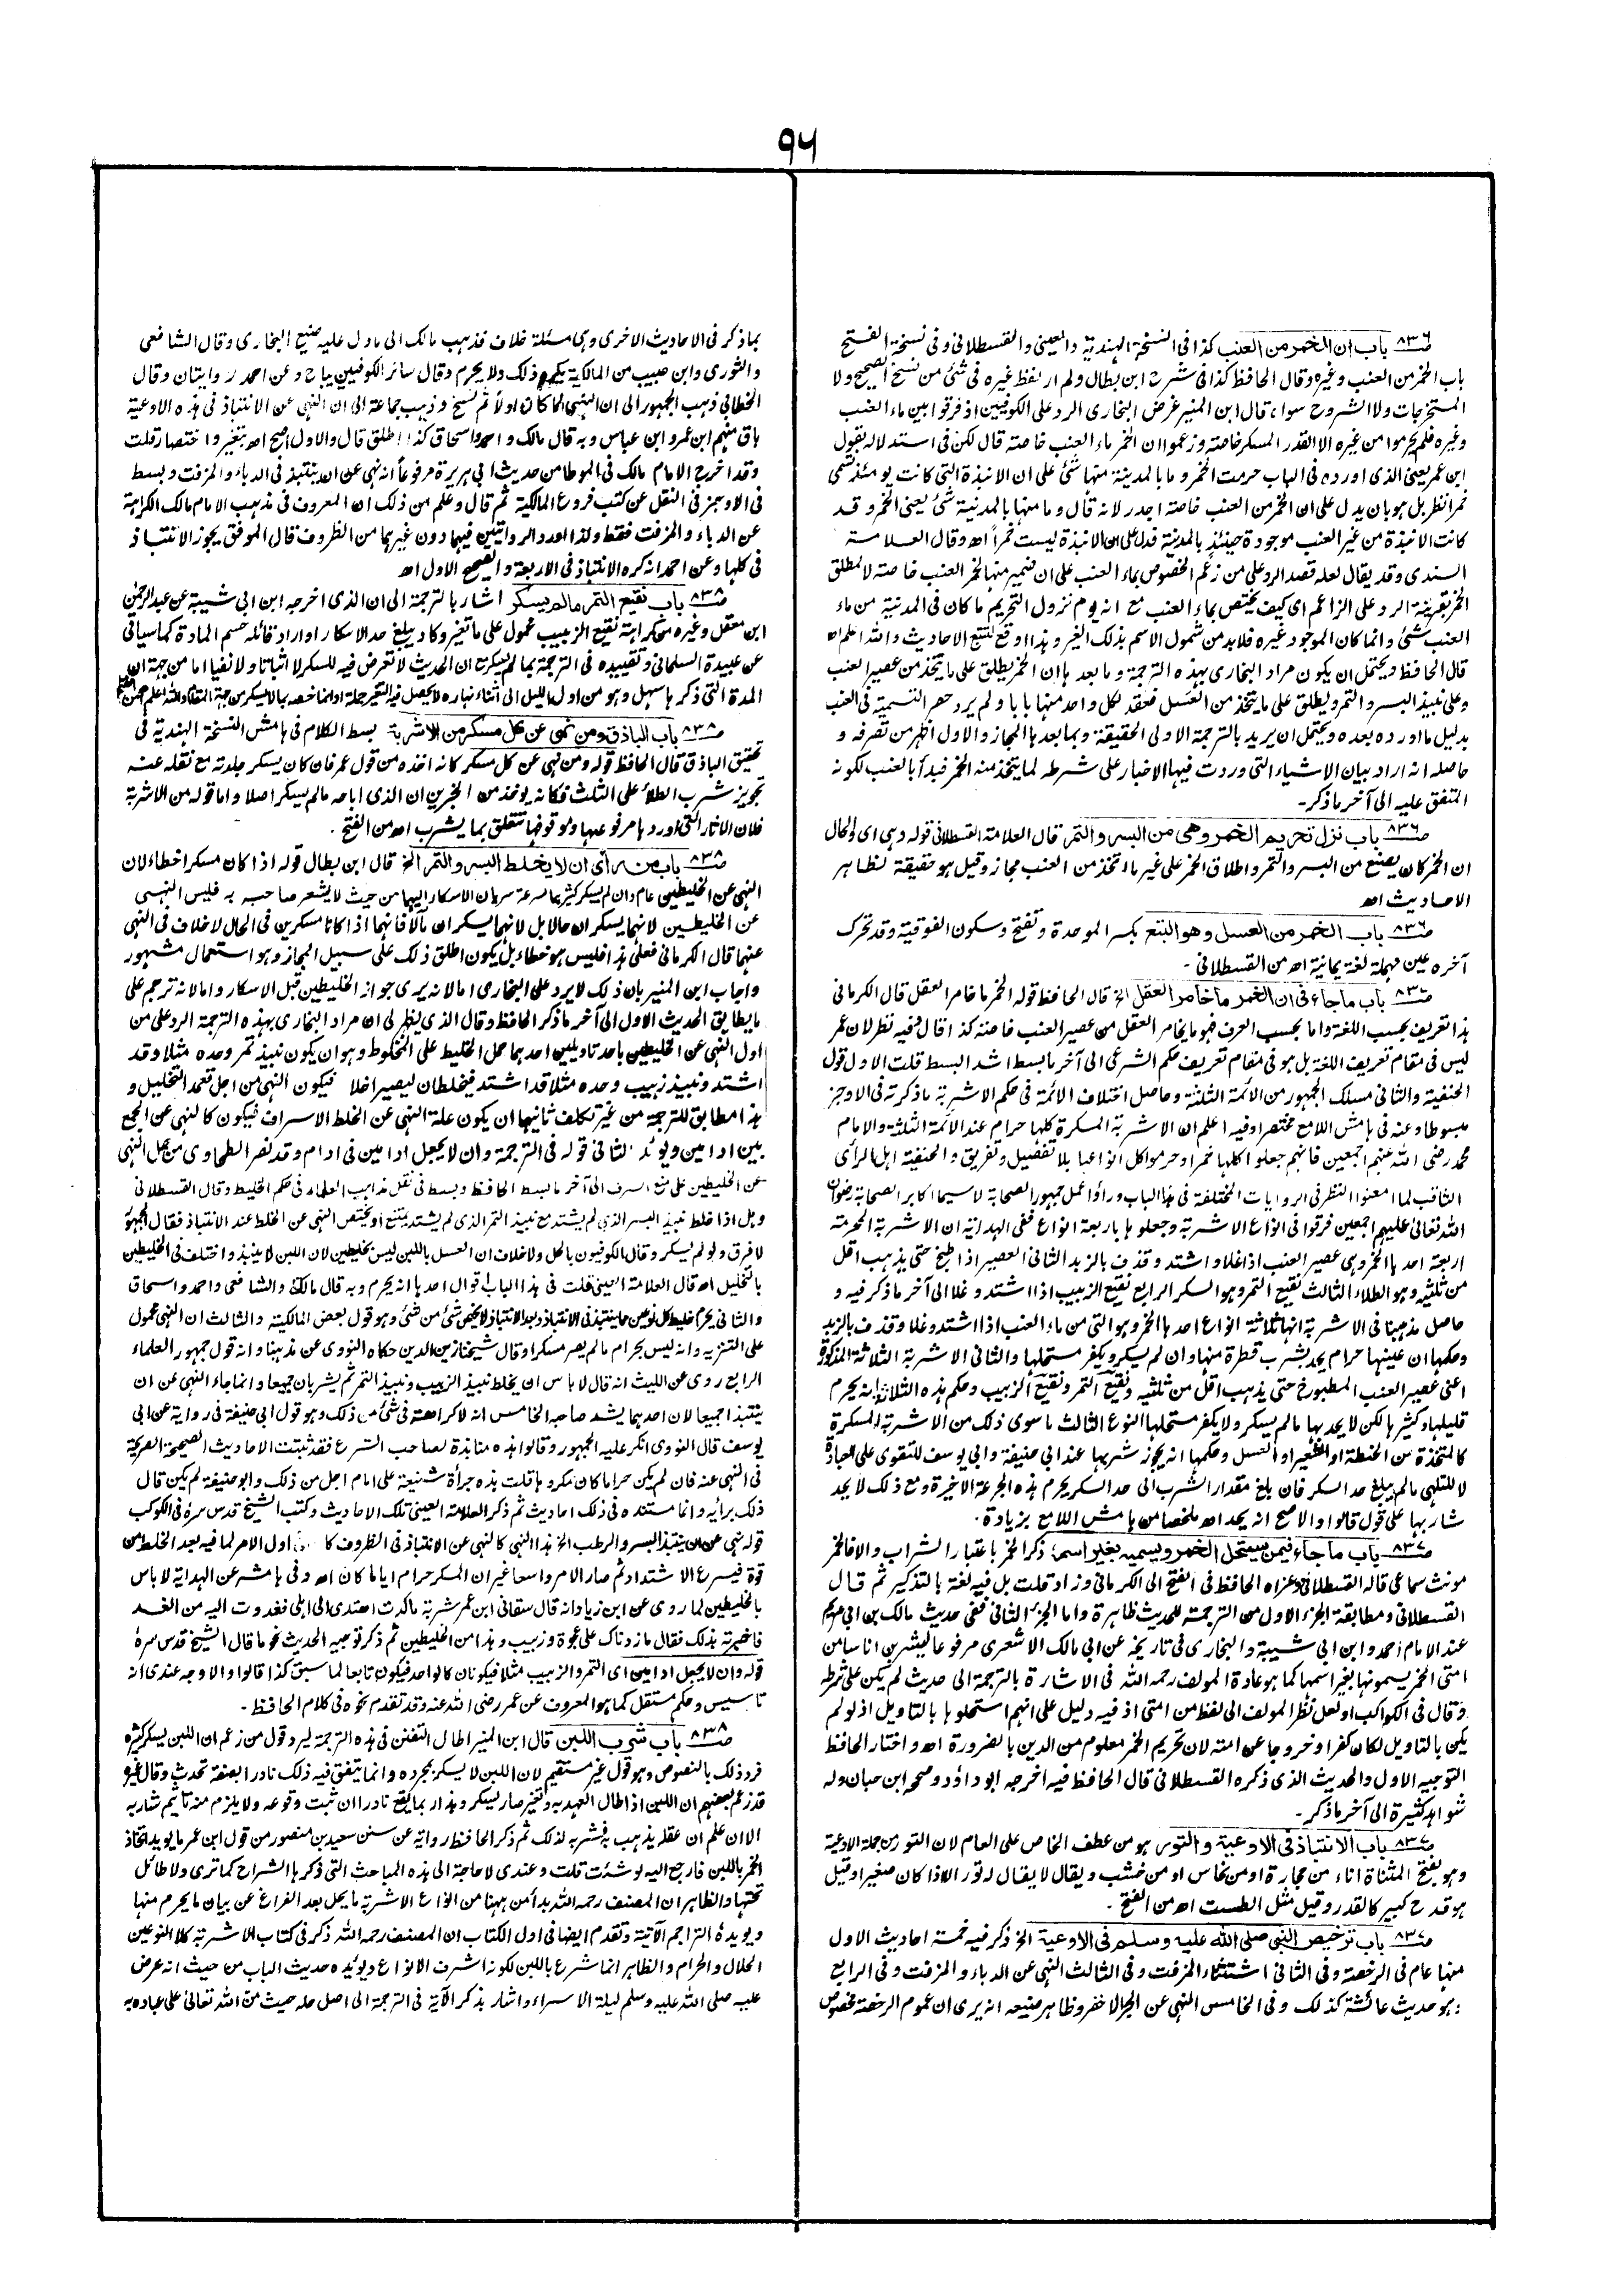 ٩٦
ص٨٣٦ باب ان الخمر من العنب كذا فى النسخة الهندية والعينى والقسطلانى وفى نسخة الفتح
باب الخمر من العنب وغيره وقال الحافظ كذا فى شرح ابن بطال ولم ار لفظ غيره فى شئ من نسخ الصحيح ولا
المستخرجات ولا الشروح سواه قال ابن المنير غرض البخارى الرد على الكوفيين اذ فرقوا بين ماء العنب
وغيره فلم يحرموا من غيره الا القدر المسكر خاصة وزعموا ان الخمر ماء العنب خاصة قال لكن فى استدلاله بقول
ابن عمر يعنى الذى اورده فى الباب حرمت الخمر وما بالمدينة منها شئ على ان الانبذة التى كانت يومئذ تسمى
خمرا نظر بل هو بان يدل على ان الخمر من العنب خاصة اجدر لانه قال وما منها بالمدينة شئ يعنى الخمر وقد
كانت الانبذة من غير العنب موجودة حينئذ بالمدينة فدل على ان الانبذة ليست خمراً اه وقال العلامة
السندى وقد يقال لعله قصد الرد على من زعم الخصوص بماء العنب على ان ضمير منها لخمر العنب خاصة لا لمطلق
الخمر بقرينة الرد على الزاعم اى كيف يختص بماء العنب مع انه يوم نزول التحريم ما كان فى المدنية من ماء
العنب شئ وانما كان الموجود غيره فلابد من شمول الاسم بذلك الغير وهذا اوقع لتتبع الاحاديث والله اعلم اه
قال الحافظ ويحتمل ان يكون مراد البخارى بهذه الترجمة وما بعدها ان الخمر يطلق على ما يتخذ من عصير العنب
وعلى نبيذ البسر والتمر ويطلق على ما يتخذ من العسل فعقد لكل واحد منها بابا ولم يرد حصر التسمية فى العنب
بدليل ما اورده بعده ويحتمل ان يريد بالترجمة الاولى الحقيقة وبما بعدها المجاز والاول اظهر من تصرفه و
حاصله انه اراد بيان الاشياء التى وردت فيها الاخبار على شرطه لما يتخذ منه الخمر فبدأ بالعنب لكونه
المتفق عليه الى آخر ما ذكر۔
ص٨٣٦ باب نزل تحريم الخمر وهى من البسر والتمر قال العلامة القسطلانى قوله وهى اى والحال
ان الخمر كان يصنع من البسر والتمر واطلاق الخمر على غير ما اتخذ من العنب مجاز وقيل هو حقيقة لظاهر
الاحاديث اه
ص٨٣٦ باب الخمر من العسل وهو البتع بكسر الموحدة وتفتح وسكون الفوقية وقد تحرك
آخره عين مهملة لغة يمانية اه من القسطلانى۔
ص٨٣٧ باب ما جاء فى ان الخمر ما خامر العقل الخ قال الحافظ قوله الخمر ما خامر العقل قال الكرمانى
هذا تعريف بحسب اللغة واما بحسب العرف فهو ما يخامر العقل من عصير العنب خاصة كذا قال وفيه نظر لان عمر
ليس فى مقام تعريف اللغة بل هو فى مقام تعريف حكم الشرعى الى آخر ما بسط اشد البسط قلت الاول قول
الحنفية والثانى مسلك الجمهور من الائمة الثلثة وحاصل اختلاف الائمة فى حكم الاشربة ما ذكرته فى الاوجز
مبسوطا وعنه فى هامش اللامع مختصرا وفيه اعلم ان الاشربة المسكرة كلها حرام عند الائمة الثلثة والامام
محمد رضى الله عنهم اجمعين فانهم جعلوا كلها خمرا وحرموا كل انواعها بلا تفصيل وتفريق والحنفية اهل الرأى
الثاقب لما امعنوا النظر فى الروايات المختلفة فى هذا الباب ورأوا عمل جمهور الصحابة لاسيما اكابر الصحابة رضوان
الله تعالى عليهم اجمعين فرقوا فى انواع الاشربة وجعلوها باربعة انواع ففى الهداية ان الاشربة المحرمة
اربعة احدها الخمر وهى عصير العنب اذا غلا واشتد وقذف بالزبد الثانى العصير اذا طبخ حتى يذهب اقل
من ثلثيه وهو الطلاء الثالث نقيع التمر وهو السكر الرابع نقيع الزبيب اذا اشتد وغلا الى آخر ما ذكر فيه و
حاصل مذهبنا فى الاشربة انها ثلاثة انواع احدها الخمر وهو التى من ماء العنب اذا اشتد وغلا وقذف بالزبد
وحكمها ان عينها حرام يحد بشرب قطرة منها وان لم يسكر ويكفر مستحلها والثانى الاشربة الثلاثة المذكورة
اعنى عصير العنب المطبوخ حتى يذهب اقل من ثلثيه ونقيع التمر ونقيع الزبيب وحكم هذه الثلاث انه يحرم
قليلها وكثيرها لكن لا يحد بها ما لم يسكر ولا يكفر مستحلها النوع الثالث ما سوى ذلك من الاشربة المسكرة
كالمتخذة من الحنطة او الشعير او العسل وحكمها انه يجوز شربها عند ابى حنيفة وابى يوسف للتقوى على العبادة
لا للتلهى ما لم يبلغ حد السكر فان بلغ مقدار الشرب الى حد السكر يحرم هذه الجرعة الاخيرة ومع ذلك لا يحد
شاربها على قول قالوا والاصح انه يحد اه ملخصا من هامش اللامع بزيادة۔
ص٨٣٧ باب ما جاء فيمن يستحل الخمر ويسميه بغير اسمه ذكر الخمر باعتبار الشراب والا فالخمر
مونث سماعى قاله القسطلانى وعزاه الحافظ فى الفتح الى الكرمانى وزاد قلت بل فيه لغة بالتذكير ثم قال
القسطلانى ومطابقة الجزء الاول من الترجمة للحديث ظاهرة واما الجزء الثانى ففى حديث مالك بن ابى مريم
عند الامام احمد وابن ابى شيبة والبخارى فى تاريخه عن ابى مالك الاشعرى مرفوعا ليشربن اناسا من
امتى الخمر يسمونها بغير اسمها كما هو عادة المولف رحمه الله فى الاشارة بالترجمة الى حديث لم يكن على شرطه
وقال فى الكواكب او لعل نظر المولف الى لفظ من امتى اذ فيه دليل على انهم استحلوها بالتاويل اذ لو لم
يكن بالتاويل لكان كفرا وخروجا عن امته لان تحريم الخمر معلوم من الدين بالضرورة اه واختار الحافظ
التوجيه الاول والحديث الذى ذكره القسطلانى قال الحافظ فيه اخرجه ابو داؤد وصححه ابن حبان وله
شواهد كثيرة الى آخر ما ذكر۔
ص٨٣٧ باب الانتباذ فى الاوعية والتور هو من عطف الخاص على العام لان التور من جملة الاوعية
وهو بفتح المثناة اناء من حجارة او من نحاس او من خشب ويقال لا يقال له تور الا اذا كان صغيرا وقيل
هو قدح كبير كالقدر وقيل مثل الطست اه من الفتح۔
ص٨٣٧ باب ترخيص النبى صلى الله عليه وسلم فى الاوعية الخ ذكر فيه خمسة احاديث الاول
منها عام فى الرخصة وفى الثانى استثناء المزفت وفى الثالث النهى عن الدباء والمزفت وفى الرابع
هو حديث عائشة كذلك وفى الخامس النهى عن الجر الاخضر وظاهر صنيعه انه يرى ان عموم الرخصة مخصوص
بما ذكر فى الاحاديث الاخرى وهى مسئلة خلاف فذهب مالك الى ما دل عليه صنيع البخارى وقال الشافعى
والثورى وابن حبيب من المالكية يكره ذلك ولا يحرم وقال سائر الكوفيين يباح وعن احمد روايتان وقال
الخطابى ذهب الجمهور الى ان النهى انما كان اولاً ثم نسخ وذهب جماعة الى ان النهى عن الانتباذ فى هذه الاوعية
باق منهم ابن عمر وابن عباس وبه قال مالك واحمد واسحاق كذا اطلق قال والاول اصح اه بتغير واختصار قلت
وقد اخرج الامام مالك فى الموطا من حديث ابى هريرة مرفوعاً انه نهى عن ان ينتبذ فى الدباء والمزفت وبسط
فى الاوجز فى النقل عن كتب فروع المالكية ثم قال وعلم من ذلك ان المعروف فى مذهب الامام مالك الكراهة
عن الدباء والمزفت فقط ولذا اورد الروايتين فيهما دون غيرهما من الظروف قال الموفق يجوز الانتباذ
فى كلها وعن احمد انه كره الانتباذ فى الاربعة والصحيح الاول اه
ص٨٣٨ باب نقيع التمر ما لم يسكر اشار بالترجمة الى ان الذى اخرجه ابن ابى شيبة عن عبد الرحمن
ابن معقل وغيره من كراهة نقيع الزبيب محمول على ما تغير وكاد يبلغ حد الاسكار او اراد قائله حسم المادة كما سياتى
عن عبيدة السلمانى وتقييده فى الترجمة بما لم يسكر مع ان الحديث لا تعرض فيه للسكر لا اثباتا ولا نفيا اما من جهة ان
المدة التى ذكرها سهل وهو من اول الليل الى اثناء نهاره لا يحصل فيه التغير جملة اوانما خصه بما لا يسكر من جهة المقام والله اعلم اه من الفتح
ص٨٣٨ باب الباذق ومن نهى عن كل مسكر من الاشربة بسط الكلام فى هامش النسخة الهندية فى
تحقيق الباذق قال الحافظ قوله ومن نهى عن كل مسكر كانه اخذه من قول عمر فان كان يسكر جلدته مع نقله عنه
تجويز شرب الطلاء على الثلث فكانه يوخذ من الخبرين ان الذى اباحه ما لم يسكر اصلا واما قوله من الاشربة
فلان الآثار التى اوردها مرفوعها وموقوفها تتعلق بما يشرب اه من الفتح۔
ص٨٣٨ باب من رأى ان لا يخلط البسر والتمر الخ قال ابن بطال قوله اذا كان مسكرا خطاء لان
النهى عن الخليطين عام وان لم يسكر كثيرهما لسرعة سريان الاسكار اليهما من حيث لا يشعر صاحبه به فليس النهى
عن الخليطين لانهما يسكران حالا بل لانهما يسكران مآلا فانهما اذا كانا مسكرين فى الحال لا خلاف فى النهى
عنهما قال الكرمانى فعلى هذا فليس هو خطاء بل يكون اطلق ذلك على سبيل المجاز وهو استعمال مشهور
واجاب ابن المنير بان ذلك لا يرد على البخارى اما لانه يرى جواز الخليطين قبل الاسكار واما لانه ترجم على
ما يطابق الحديث الاول الى آخر ما ذكر الحافظ وقال الذى يظهر لى ان مراد البخارى بهذه الترجمة الرد على من
اول النهى عن الخليطين باحد تاويلين احدهما حمل الخليط على المخلوط وهو ان يكون نبيذ تمر وحده مثلا وقد
اشتد ونبيذ زبيب وحده مثلا قد اشتد فيخلطان ليصيرا خلا فيكون النهى من اجل تعمد التخليل و
هذا مطابق للترجمة من غير تكلف ثانيهما ان يكون علة النهى عن الخلط الاسراف فيكون كالنهى عن الجمع
بين ادامين ويؤيد الثانى قوله فى الترجمة وان لا يجعل ادامين فى ادام وقد نصر الطحاوى من حمل النهى
عن الخليطين على منع السرف الى آخر ما بسط الحافظ وبسط فى نقل مذاهب العلماء فى حكم الخليط وقال القسطلانى
وهل اذا خلط نبيذ البسر الذى لم يشتد مع نبيذ التمر الذى لم يشتد يمتنع او يختص النهى عن الخلط عند الانتباذ فقال الجمهور
لا فرق ولو لم يسكر وقال الكوفيون بالحل ولا خلاف ان العسل باللبن ليس بخليطين لان اللبن لا ينبذ واختلف فى الخليطين
بالتخليل اه قال العلامة العينى قلت فى هذا الباب اقوال احدها انه يحرم وبه قال مالك والشافعى واحمد واسحاق
والثانى يحرم خليط كل نوعين مما ينتبذ فى الانتباذ وبعد الانتباذ لا يخص شئ من شئ وهو قول بعض المالكية والثالث ان النهى محمول
على التنزيه وانه ليس بحرام ما لم يصر مسكرا وقال شيخنا زين الدين حكاه النووى عن مذهبنا وانه قول جمهور العلماء
الرابع روى عن الليث انه قال لا باس ان يخلط نبيذ الزبيب ونبيذ التمر ثم يشربان جميعا وانما جاء النهى عن ان
ينتبذا جميعا لان احدهما يشد صاحبه الخامس انه لا كراهة فى شئ من ذلك وهو قول ابى حنيفة فى رواية عن ابى
يوسف قال النووى انكر عليه الجمهور وقالوا هذه منابذة لصاحب الشرع فقد ثبتت الاحاديث الصحيحة الصريحة
فى النهى عنه فان لم يكن حراما كان مكروها قلت هذه جرأة شنيعة على امام اجل من ذلك وابو حنيفة لم يكن قال
ذلك برأيه وانما مستنده فى ذلك احاديث ثم ذكر العلامة العينى تلك الاحاديث وكتب الشيخ قدس سره فى الكوكب
قوله نهى عن ان ينتبذ البسر والرطب الخ هذا النهى كالنهى عن الانتباذ فى الظروف كان اول الامر لما فيه بعد الخلط من
قوة فيسرع الاشتداد ثم صار الامر واسعا غير ان المسكر حرام اياما كان اه وفى هامشه عن الهداية لا باس
بالخليطين لما روى عن ابن زياد انه قال سقانى ابن عمر شربة ما كدت اهتدى الى اهلى فغدوت اليه من الغد
فاخبرته بذلك فقال ما زدناك على عجوة وزبيب وهذا من الخليطين ثم ذكر توجيه الحديث نحو ما قال الشيخ قدس سره
قوله وان لا يجعل ادامين اى التمر والزبيب مثلا فيكونان كالواحد فيكون تابعا لما سبق كذا قالوا والاوجه عندى انه
تاسيس وحكم مستقل كما هو المعروف عن عمر رضى الله عنه وقد تقدم نحوه فى كلام الحافظ۔
ص٨٣٨ باب شرب اللبن قال ابن المنير اطال التفنن فى هذه الترجمة ليرد قول من زعم ان اللبن يسكر كثيره
فرد ذلك بالنصوص وهو قول غير مستقيم لان اللبن لا يسكر بمجرده وانما يتفق فيه ذلك نادرا بصفة تحدث وقال غيره
قد زعم بعضهم ان اللبن اذا طال العهد به وتغير صار يسكر وهذا ربما يقع نادرا ان ثبت وقوعه ولا يلزم منه تاثيم شاربه
الا ان علم ان عقله يذهب به فشربه لذلك ثم ذكر الحافظ رواية عن سنن سعيد بن منصور من قول ابن عمر ما يويد اتخاذ
الخمر باللبن فارجع اليه لو شئت قلت وعندى لا حاجة الى هذه المباحث التى ذكرها الشراح كما ترى ولا طائل
تحتها والظاهر ان المصنف رحمه الله بدأ من ههنا من انواع الاشربة ما يحل بعد الفراغ عن بيان ما يحرم منها
ويويده التراجم الآتية وتقدم ايضا فى اول الكتاب ان المصنف رحمه الله ذكر فى كتاب الاشربة كلا النوعين
الحلال والحرام والظاهر انما شرع باللبن لكونه اشرف الانواع ويؤيده حديث الباب من حيث انه عرض
عليه صلى الله عليه وسلم ليلة الاسراء واشار بذكر الآية فى الترجمة الى اصل حله حيث من الله تعالى على عباده به